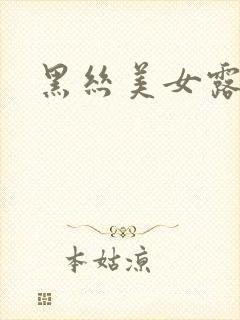 黑丝美女露
本姑凉